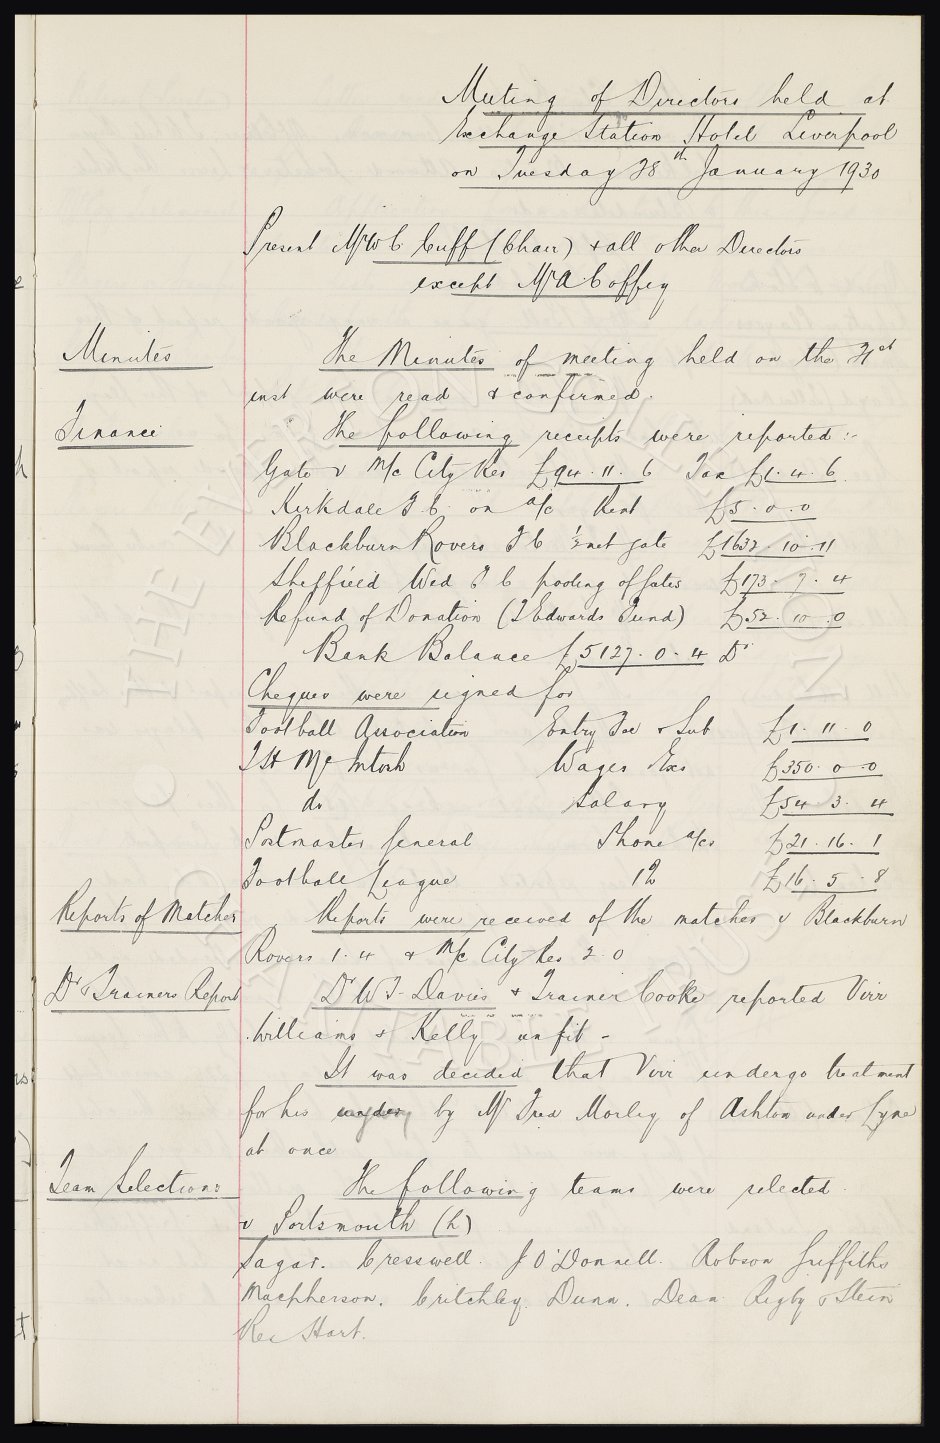 Meeting of Directors held at
Exchange Station Hotel Liverpool
on Tuesday 28th January 1930
Present Mr W C Cuff (Chair) & all other Directors
except Mr A Coffey
Minutes
The Minutes of meeting held on the 21st
inst were read & confirmed.
Finance
The following receipts were reported :-
Gate v M/c City Res £94. 11. 6 Tax £1. 4. 6
Kirkdale F.C. on a/c Rent £5. 0. 0
Blackburn Rovers F C ½ net gate £1632. 10. 11
Sheffield Wed F C pooling of gates £173. 7. 4
Refund of Donation (T Edwards Fund) £52. 10. 0
Bank Balance £5127. 0. 4 Dr
Cheques were signed for
Football Association Entry Fee & Sub £1. 11. 0
T H McIntosh Wages Exs £350. 0. 0
do Salary £54. 3. 4
Postmaster General Phone a/cs £21. 16. 1
Football League 1% £16. 5. 8
Reports of Matches
Reports were received of the matches v Blackburn
Rovers 1. 4 & M/c City Res 2. 0
Dr & Trainers Report
Dr W T Davies & Trainer Cooke reported Virr
Williams & Kelly unfit -
It was decided that Virr undergo treatment
for his by Mr Fred Morley of Ashton under Lyne
at once
Team Selections
The following teams were selected
v Portsmouth (h)
Sagar. Cresswell. J O'Donnell. Robson Griffiths
Macpherson. Critchley. Dunn. Dean. Rigby & Stein
Res Hart.
© THE EVERTON COLLECTION CHARITABLE TRUST